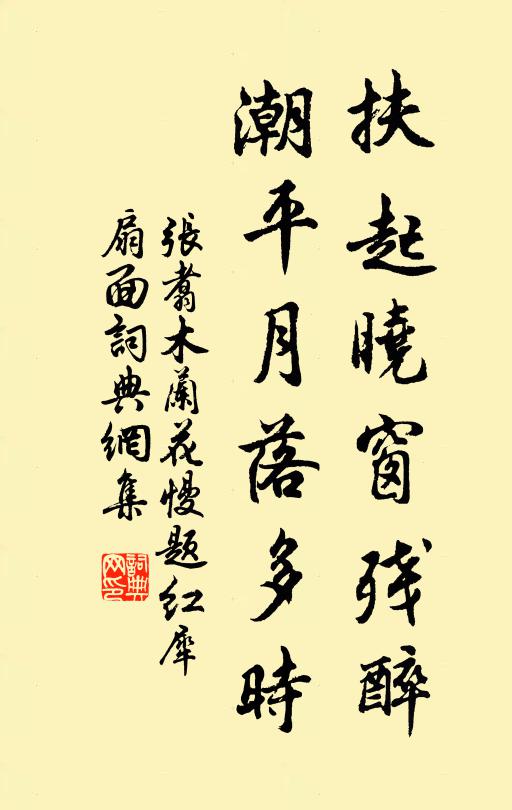 扶起曉窗残醉
潮平月落多時
張翥木蘭花慢題红犀
扇面詞典網集
詞典
网印